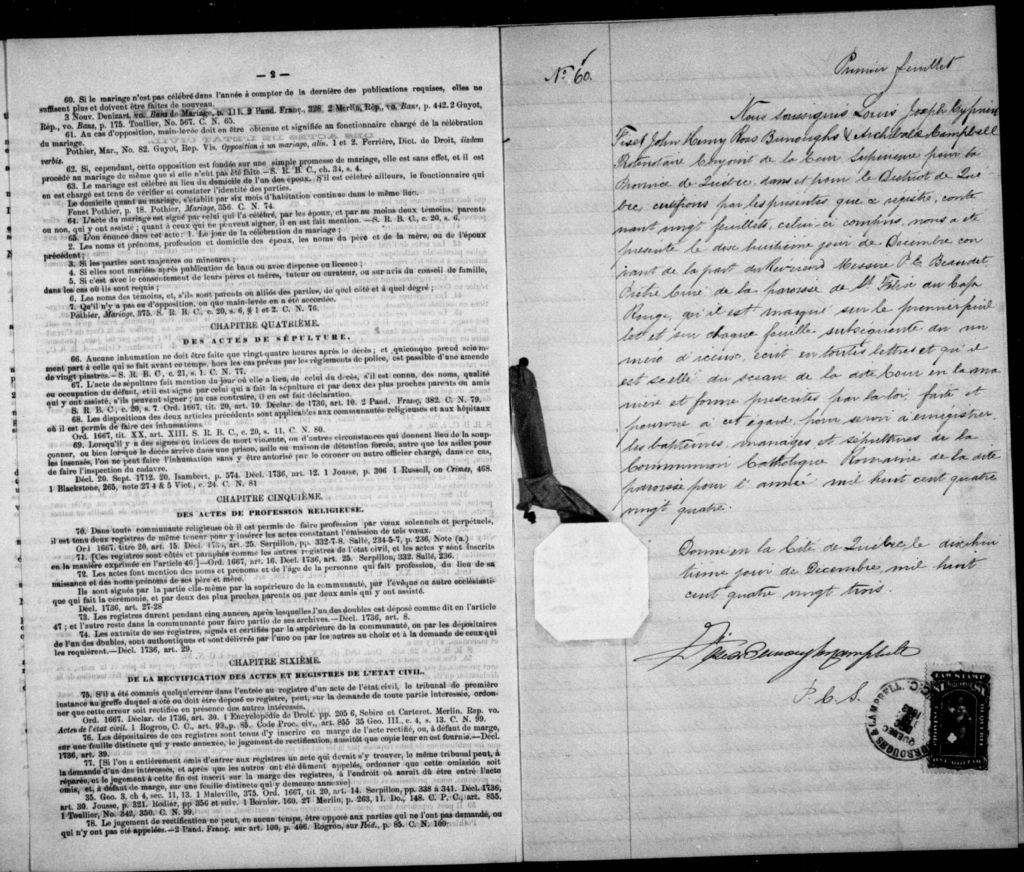 — 2 —
60. Si le mariage n'est pas célébré dans l'année à compter de la dernière des publications requises, elles ne
suffisent plus et doivent être faites de nouveau.
3 Nouv. Denizart, vo. Bans de Mariage, p. 111. 2 Pand. Franç., 328. 2 Merlin, Rép., vo. Bans, p. 442. 2 Guyot,
Rép., vo. Bans, p. 175. Toullier, No. 567. C. N. 65.
61. Au cas d'opposition, main-levée doit en être obtenue et signifiée au fonctionnaire chargé de la célébration
du mariage.
Pothier, Mar., No. 82. Guyot, Rep. Vis. Opposition à un mariage, alin. 1 et 2. Ferrière, Dict. de Droit, iisdem
verbis.
62. Si, cependant, cette opposition est fondée sur une simple promesse de mariage, elle est sans effet, et il est
procédé au mariage de même que si elle n'eut pas été faite.—S. R. B. C., ch. 34, s. 4.
63. Le mariage est célébré au lieu du domicile de l'un des époux. S'il est célébré ailleurs, le fonctionnaire qui
en est chargé est tenu de vérifier et constater l'identité des parties.
Le domicile quant au mariage, s'établit par six mois d'habitation continue dans le même lieu.
Fenet Pothier, p. 18. Pothier, Mariage, 356. C. N. 74.
64. L'acte du mariage est signé par celui qui l'a célébré, par les époux, et par au moins deux témoins, parents
ou non, qui y ont assisté ; quant à ceux qui ne peuvent signer, il en est fait mention.—S. R. B. C., c. 20, s. 6.
65. L'on énonce dans cet acte : 1. Le jour de la célébration du mariage ;
2. Les noms et prénoms, profession et domicile des époux, les noms du père et de la mère, ou de l'époux
précédent ;
3. Si les parties sont majeures ou mineures ;
4. Si elles sont mariées après publication de bans ou avec dispense ou licence ;
5. Si c'est avec le consentement de leurs pères et mères, tuteur ou curateur, ou sur avis du conseil de famille,
dans les cas où ils sont requis ;
6. Les noms des témoins, et, s'ils sont parents ou alliés des parties, de quel côté et à quel degré ;
7. Qu'il n'y a pas eu d'opposition, ou que main-levée en a été accordée.
Pothier, Mariage, 375. S. R. B. C., c. 20, s. 6, § 1 et 2. C. N. 76.
CHAPITRE QUATRIÈME.
DES ACTES DE SÉPULTURE.
66. Aucune inhumation ne doit être faite que vingt-quatre heures après le décès ; et quiconque prend sciem-
ment part à celle qui se fait avant ce temps, hors les cas prévus par les règlements de police, est passible d'une amende
de vingt piastres.—S. R. B. C., c. 21, s. 1. C. N. 77.
67. L'acte de sépulture fait mention du jour où elle a lieu, de celui du décès, s'il est connu, des noms, qualité
ou occupation du défunt, et il est signé par celui qui a fait la sépulture et par deux des plus proches parents ou amis
qui y ont assisté, s'ils peuvent signer ; au cas contraire, il en est fait déclaration.
S. R. B. C., c. 20, s. 7. Ord. 1667, tit. 20, art. 10. Déclar. de 1736, art. 10. 2 Pand. Franç. 382. C. N. 79.
68. Les dispositions des deux articles précédents sont applicables aux communautés religieuses et aux hôpitaux
où il est permis de faire des inhumations.
Ord. 1667, tit. XX, art. XIII. S. R. B. C., c. 20, s. 11. C. N. 80.
69. Lorsqu'il y a des signes ou indices de mort violente, ou d'autres circonstances qui donnent lieu de la soup-
çonner, ou bien lorsque le décès arrive dans une prison, asile ou maison de détention forcée, autre que les asiles pour
les insensés, l'on ne peut faire l'inhumation sans y être autorisé par le coroner ou autre officier chargé, dans ce cas,
de faire l'inspection du cadavre.
Décl. 20. Sept. 1712. 20. Isambert, p. 574. Décl. 1736, art. 12. 1 Jousse, p. 306 1 Russell, on Crimes, 468.
1 Blackstone, 265, note 27 4 & 5 Vict., c. 24. C. N. 81
CHAPITRE CINQUIÈME.
DES ACTES DE PROFESSION RELIGIEUSE.
70. Dans toute communauté religieuse où il est permis de faire profession par vœux solennels et perpétuels,
il est tenu deux registres de même teneur pour y insérer les actes constatant l'émission de tels vœux.
Ord 1667. titre 20, art. 15. Décl 1736, art. 25. Serpillon, pp. 332-7-8. Sallé, 234-5-7, p. 236, Note (a.)
71. [Ces registres sont côtés et paraphés comme les autres registres de l'état civil, et les actes y sont inscrits
en la manière exprimée en l'article 46.]—Ord. 1667, art. 16. Decl. 1736, art. 25. Serpillon, 332. Sallé, 236.
72. Les actes font mention des noms et prénoms et de l'âge de la personne qui fait profession, du lieu de sa
naissance et des noms prénoms de ses père et mère.
Ils sont signés par la partie elle-même par la supérieure de la communauté, par l'évêque ou autre ecclésiasti-
que qui fait la cérémonie, et par deux des plus proches parents ou par deux amis qui y ont assisté.
Décl. 1736, art. 27-28
73. Les registres durent pendant cinq années, après lesquelles l'un des doubles est déposé comme dit en l'article
47 ; et l'autre reste dans la communauté pour faire partie de ses archives.—Décl. 1736, art. 8.
74. Les extraits de ses registres, signés et certifiés par la supérieure de la communauté, ou par les dépositaires
de l'un des doubles, sont authentiques et sont délivrés par l'une ou par les autres au choix et à la demande de ceux qui
les requièrent.—Décl. 1736, art. 29.
CHAPITRE SIXIÈME.
DE LA RECTIFICATION DES ACTES ET REGISTRES DE L'ETAT CIVIL.
75. S'il a été commis quelqu'erreur dans l'entrée au registre d'un acte de l'état civil, le tribunal de première
instance au greffe duquel a été ou doit être déposé ce registre, peut, sur la demande de toute partie interessée, ordon-
ner que cette erreur soit rectifiée en présence des autres intéressés.
Ord. 1667. Déclar. de 1736, art. 30. 1 Encyclopédie de Droit. pp. 205 6, Sebire et Carteret. Merlin. Rep. vo.
Actes de l'état civil. 1 Rogron, C. C., art. 99., p. 85. Code Proc. civ., art. 855 35 Geo. III., c. 4, s. 13. C. N. 99.
76. Les dépositaires de ces registres sont tenus d'y inscrire en marge de l'acte rectifié, ou, à défaut de marge,
sur une feuille distincte qui y reste annexée, le jugement de rectification, aussitôt que copie leur en est fournie.—Decl.
1736, art. 39.
77. [Si l'on a entièrement omis d'entrer aux registres un acte qui devait s'y trouver, le même tribunal peut, à
la demande d'un des intéressés, et après que les autres ont été dûment appelés, ordonner que cette omission soit
réparée, et le jugement à cette fin est inscrit sur la marge des registres, à l'endroit où aurait dû être entré l'acte
omis, et, à défaut de marge, sur une feuille distincte qui y demeure annexée]
35. Geo. 3, ch 4, sec. 11, 13. 1 Maleville, 375. Ord. 1667, tit 20, art. 14. Serpillon, pp. 338 à 341. Décl. 1736,
art. 30. Jousse, p. 321. Rodier, pp 356 et suiv. 1 Bornier. 160. 27 Merlin, p. 263, 11. Do., 148. C. P. C., art. 855.
1 Toullier, No. 342, 350. C. N. 99.
78. Le jugement de rectification ne peut, en aucun temps, être opposé aux parties qui ne l'ont pas demandé, ou
qui n'y ont pas été appelées.—2 Pand. Franç. sur art. 100, p. 406. Rogron, sur Ibid., p. 85. C. N. 100.
No. 60.
Premier feuillet
Nous soussignés Louis Joseph Cyprien
Fiset John Henry Ross Burroughs & Archibald Campbell
Protonotaire Conjoint de la Cour Superieure pour la
Province de Québec, dans et pour le District de Qué
bec, certifions par les présentes que ce registre, conte
nant vingt feuillets, celui-ci compris, nous a été
présenté le dix huitième jour de Decembre cou
rant de la part du Révérend Messire P. E. Beaudet
Prêtre Curé de la paroisse de St Felix du Cap
Rouge, qu'il est marqué sur le premier feuil
let et sur chaque feuille subsequente du nu
méro d'icelui, écrit en toutes lettres et qu'il
est scellé du sceau de la dite Cour en la ma
nière et forme prescrites par la loi, faite et
pourvue à cet égard, pour servir à enregistrer
les baptêmes, mariages et sépultures de la
Communion Catholique Romaine de la dite
paroisse pour l'année mil huit cent quatre
vingt quatre.
Donné en la Cité de Québec, le dix hui
tième jour de Decembre, mil huit
cent quatre vingt trois.
Fiset Burroughs Campbell
P. C. S.
BURROUGHS & CAMPBELL
QUEBEC
LAW STAMP
ONE DOLLAR